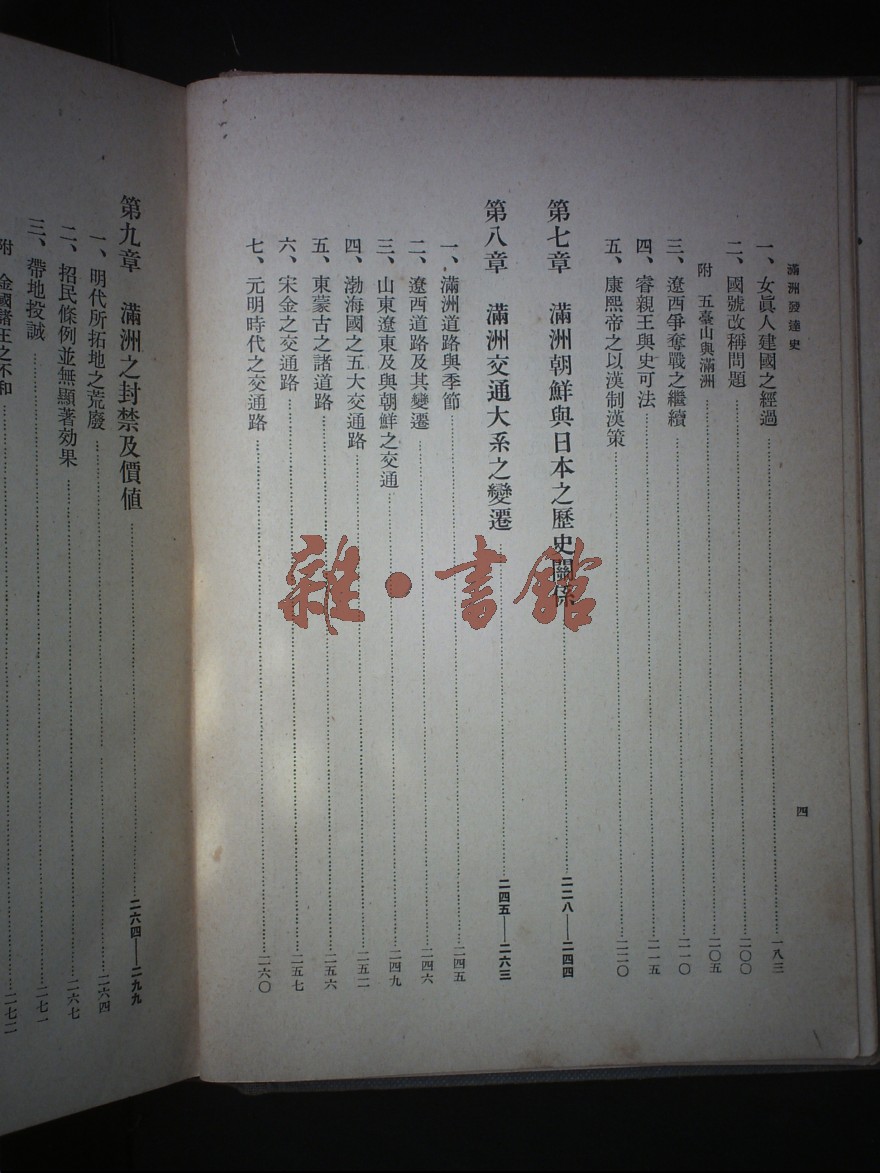 滿洲發達史
一、女眞人建國之經過 一八三
二、國號改稱問題 二〇〇
附 五臺山與滿洲 二〇五
三、遼西爭奪戰之繼續 二一〇
四、睿親王與史可法 二一五
五、康熙帝之以漢制漢策 二二〇
第七章 滿洲朝鮮與日本之歷史關係 二二八—二四四
第八章 滿洲交通大系之變遷 二四五—二六三
一、滿洲道路與季節 二四五
二、遼西道路及其變遷 二四六
三、山東遼東及與朝鮮之交通 二四九
四、渤海國之五大交通路 二五二
五、東蒙古之諸道路 二五六
六、宋金之交通路 二五七
七、元明時代之交通路 二六〇
四
第九章 滿洲之封禁及價値 二六四—二九九
一、明代所拓地之荒廢 二六四
二、招民條例並無顯著効果 二六七
三、帶地投誠 二七一
附 金國諸王之不和 二七二
雜·書館